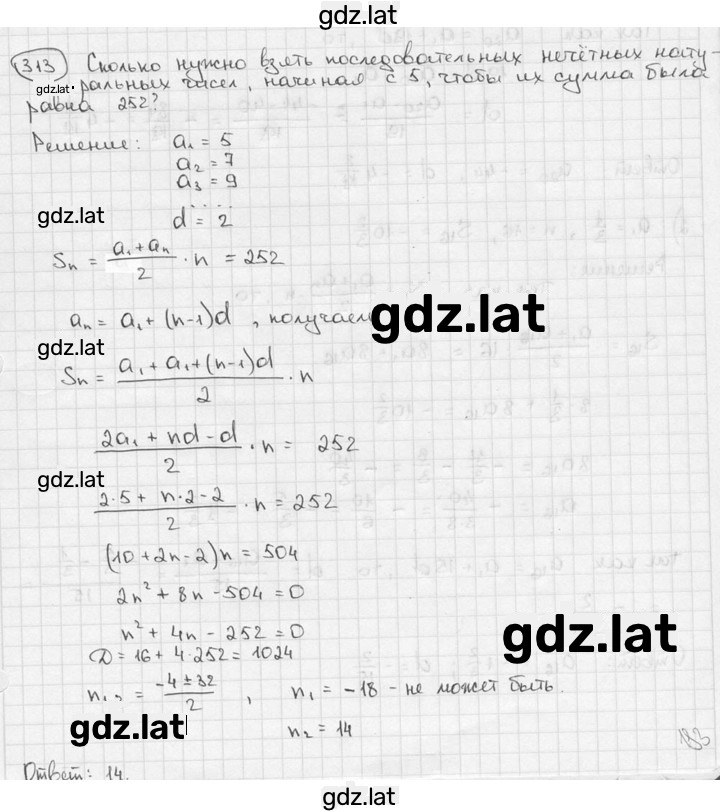 gdz.lat
313 Сколько нужно взять последовательных нечётных нату-
gdz.lat ральных чисел, начиная с 5, чтобы их сумма была
равна 252?
Решение: a₁ = 5
a₂ = 7
a₃ = 9
gdz.lat ....
d = 2
Sₙ = (a₁ + aₙ)/2 · n = 252
aₙ = a₁ + (n-1)d , получаем gdz.lat
gdz.lat
Sₙ = (a₁ + a₁ + (n-1)d)/2 · n
(2a₁ + nd - d)/2 · n = 252
gdz.lat
(2·5 + n·2 - 2)/2 · n = 252
(10 + 2n - 2)n = 504
2n² + 8n - 504 = 0
n² + 4n - 252 = 0
gdz.lat
D = 16 + 4·252 = 1024
n₁,₂ = (-4 ± 32)/2 , n₁ = -18 - не может быть.
gdz.lat n₂ = 14
183
Ответ: 14.
gdz.lat